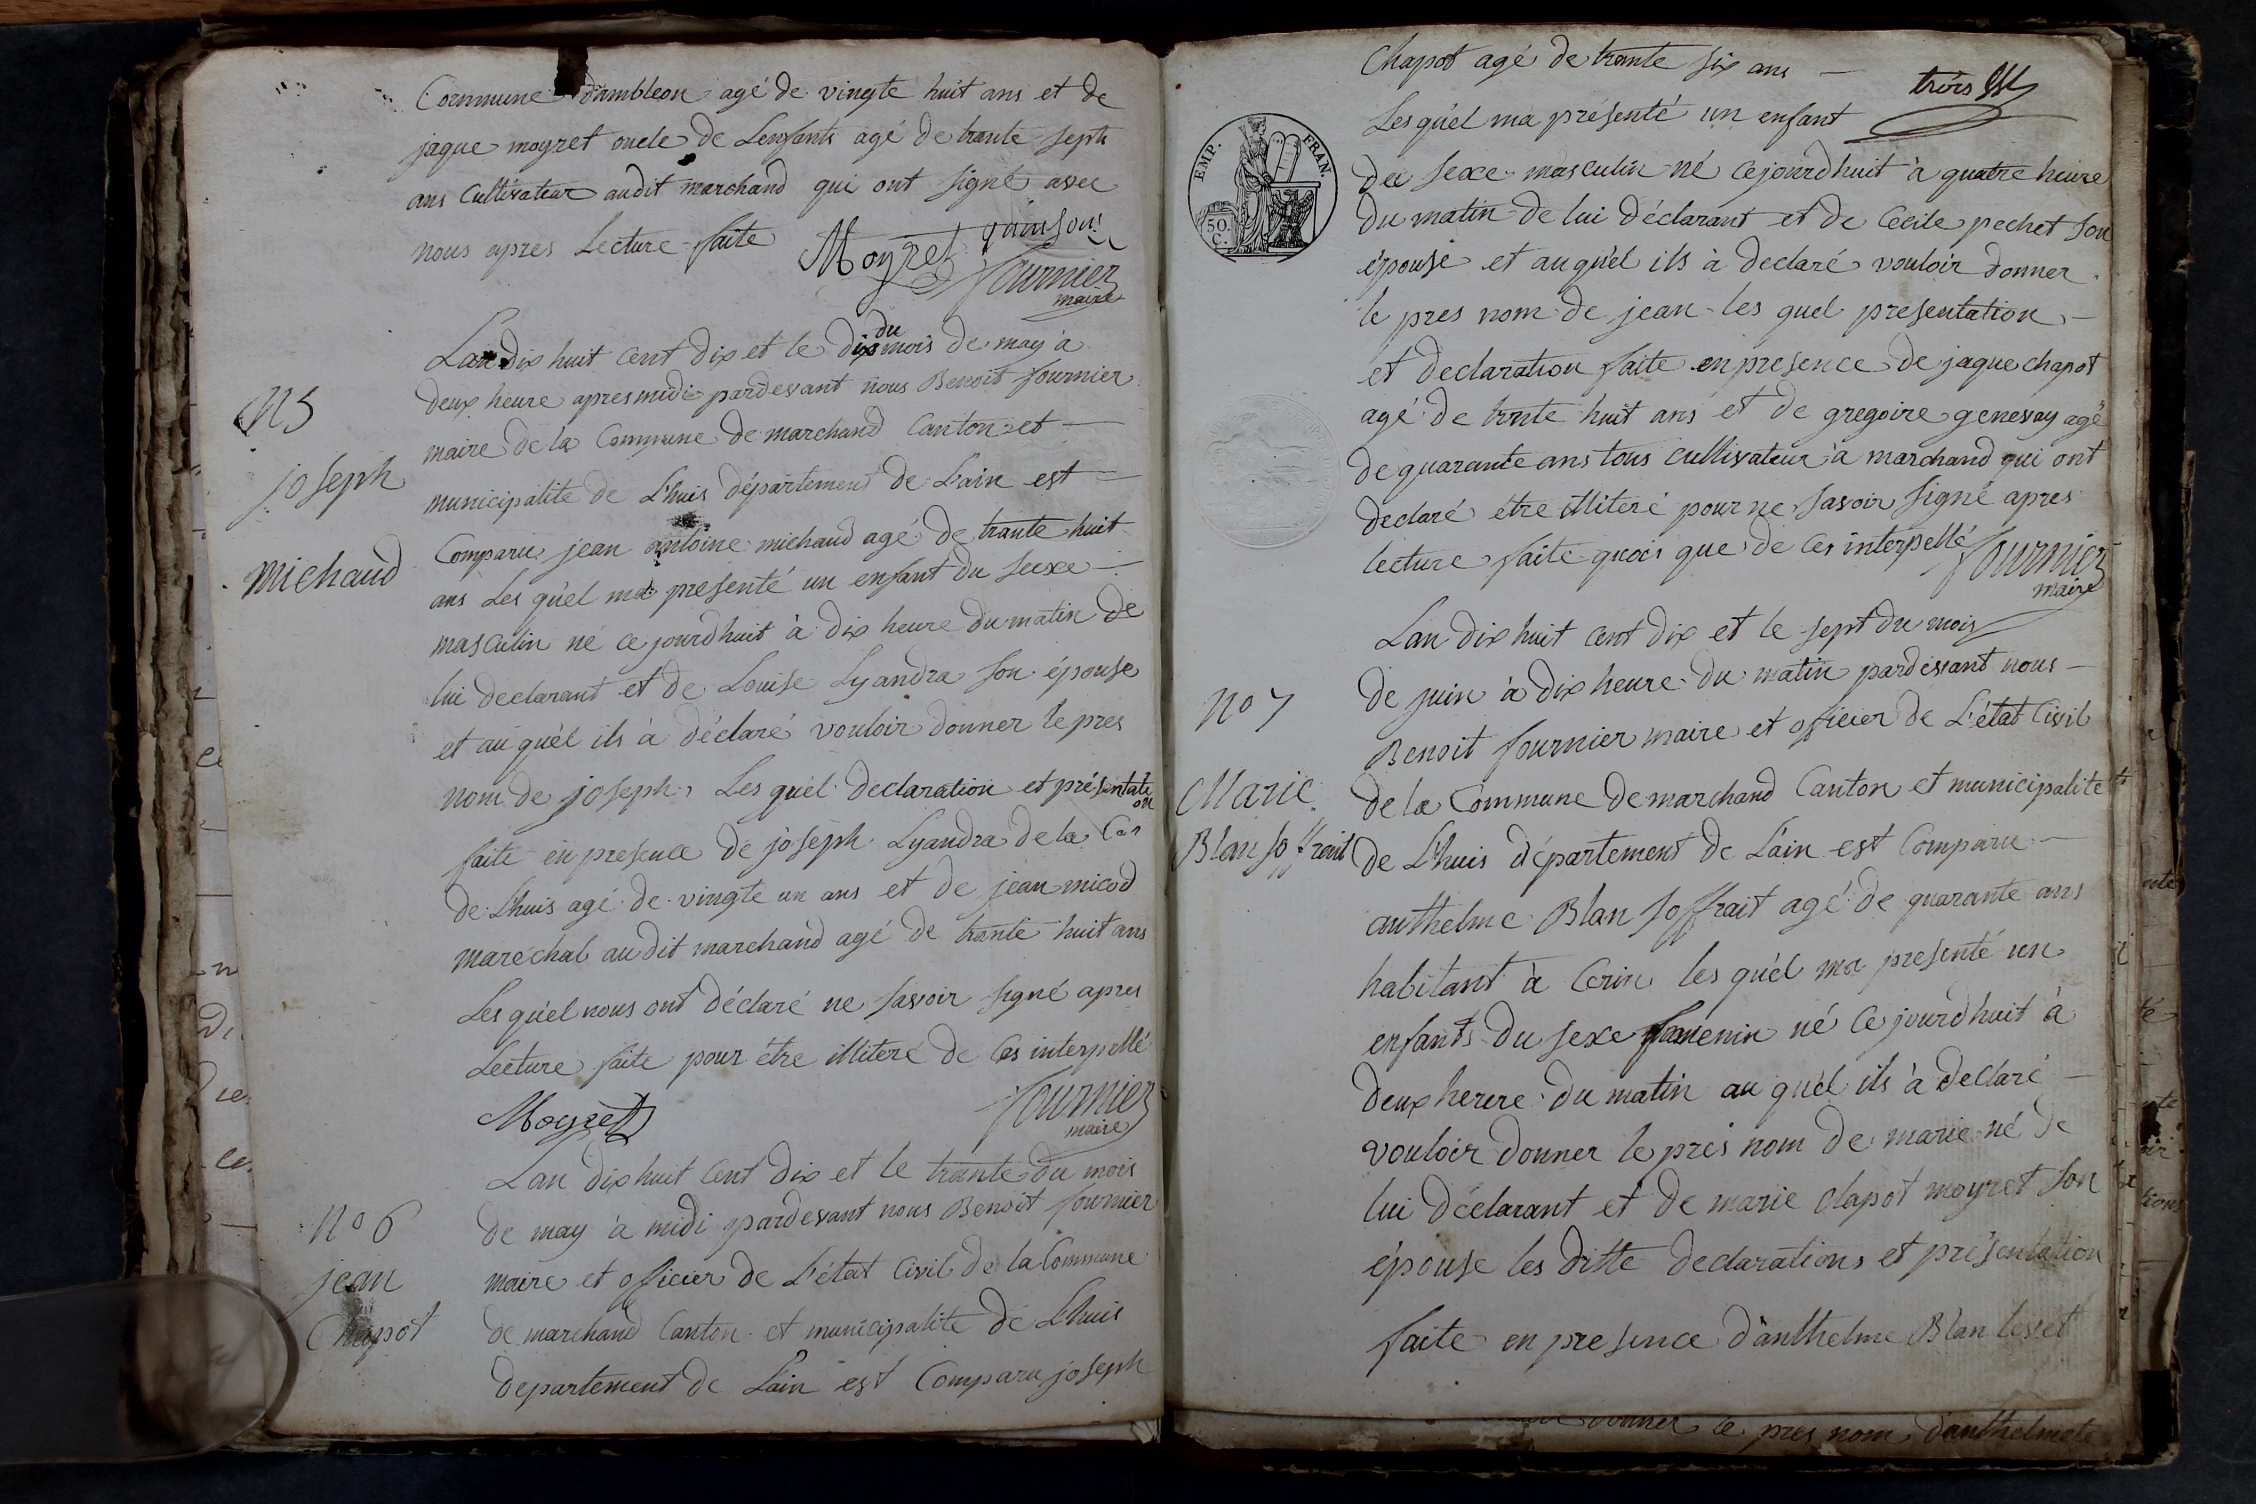 Commune d'ambleon agé de vingte huit ans et de
jaque moyret oncle de Lenfants agé de trante sept
ans Cultivateur audit marchand qui ont signé avec
nous apres Lecture faite
Moyret
fournier
maire
N 5
joseph
michaud
Lan dix huit cent dix et le dix du mois de may à
deux heure apres midi pardevant nous Benoit fournier
maire de la Commune de marchand Canton et
municipalité de Lhuis département de Lain est
Comparu jean antoine michaud agé de trante huit
ans Les quèl ma presenté un enfant du sexe
masculin né ce jourdhuit à dix heure du matin de
lui declarant et de Louise Lyandra son épouse
et au quèl ils à déclaré vouloir donner le pres
nom de joseph, Les quèl declaration et présentation
faite en presence de joseph Lyandra de la
de Lhuis agé de vingte un ans et de jean micod
maréchal audit marchand agé de trante huit ans
Les quèl nous ont déclaré ne savoir signé apres
Lecture faite pour être illiteré de Ces interpellé
Moyret
fournier
maire
No 6
jean
Chapot
Lan dix huit Cent dix et le trante du mois
de may à midi pardevant nous Benoit fournier
maire et officier de L'état Civil de la Commune
de marchand Canton et municipalité de Lhuis
departement de Lain est Comparu joseph
Chapot agé de trante six ans
trois
Les quèl ma présenté un enfant
EMP. FRAN.
50.
C.
du sexe masculin né cejourdhuit à quatre heure
du matin de lui déclarant et de Cecile pechet son
épouse et auquèl ils à declaré vouloir donner
le pres nom de jean les quel presentation
et declaration faite en presence de jaque chapot
agé de trnte huit ans et de gregoire genevay agé
de quarante ans tous cultivateur à marchand qui ont
declaré être illiteré pour ne savoir signé apres
lecture faite que de ces interpellé
fournier
maire
No 7
Marie
Blan soffrait
Lan dix huit cent dix et le sept du mois
de juin à dix heure du matin pardevant nous
Benoit fournier maire et officier de L'état Civil
de la Commune de marchand Canton et municipalité
de Lhuis département de Lain est Comparu
anthelme Blan soffrait agé de quarante ans
habitant à Cerin les quèl ma presenté un
enfants du sexe né ce jourdhuit à
deux heure du matin au quèl ils à declaré
vouloir donner le pres nom de marie né de
lui déclarant et de marie moyret son
épouse les ditte declarations et présentation
faite en presence d'anthelme Blan
donner le pres nom d'anthelme